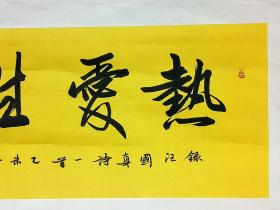 熱愛生
錄汪國真詩一首乙未